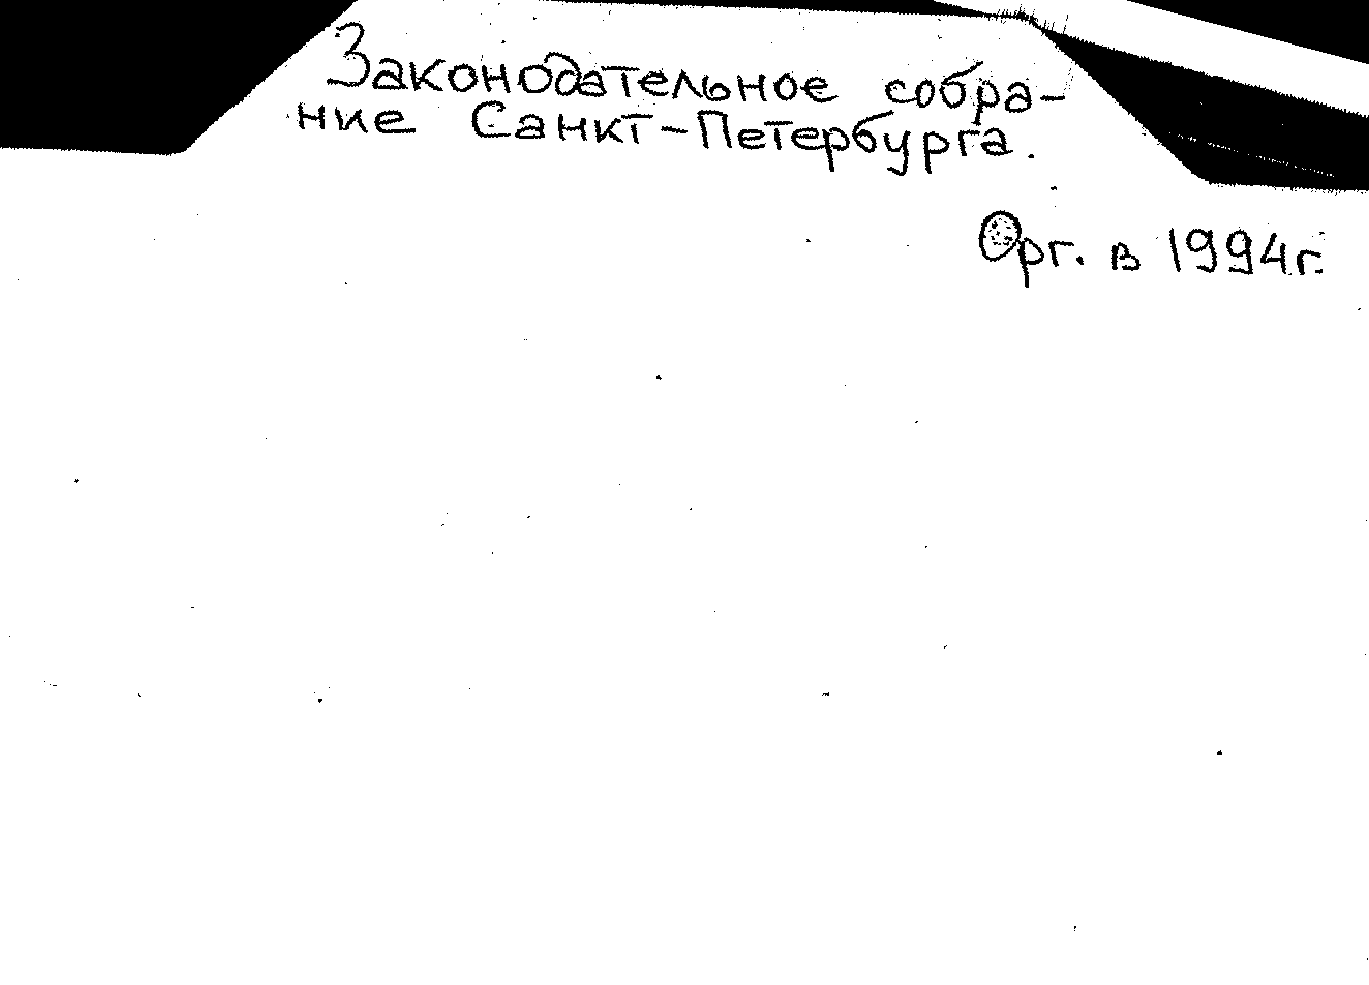 Законодательное собра-
ние Санкт-Петербурга.
Орг. в 1994г.